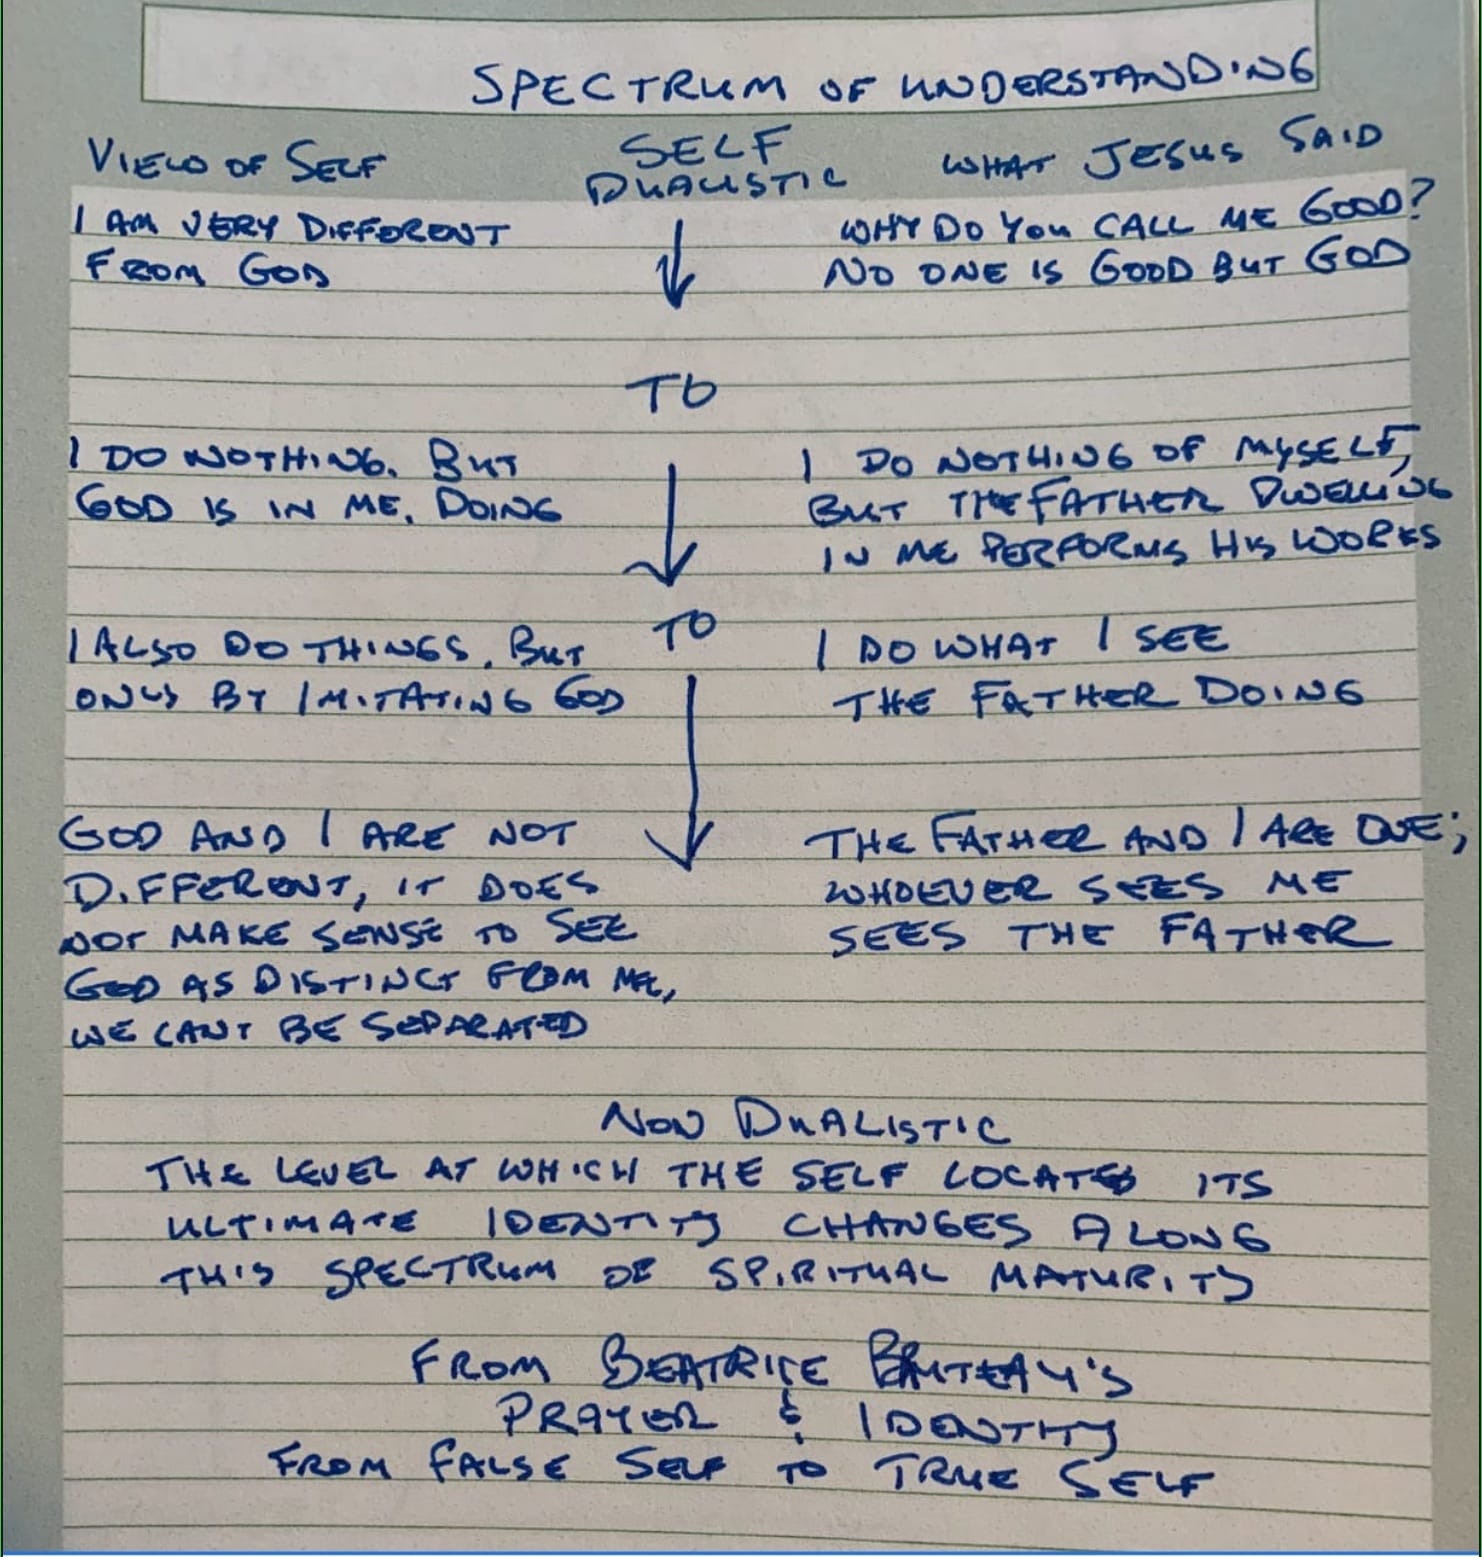 SPECTRUM OF UNDERSTANDING
VIEW OF SELF
SELF
DUALISTIC
WHAT JESUS SAID
I AM VERY DIFFERENT
FROM GOD
WHY DO YOU CALL ME GOOD?
NO ONE IS GOOD BUT GOD
TO
I DO NOTHING. BUT
GOD IS IN ME. DOING
I DO NOTHING OF MYSELF,
BUT THE FATHER DWELLING
IN ME PERFORMS HIS WORKS
TO
I ALSO DO THINGS. BUT
ONLY BY IMITATING GOD
I DO WHAT I SEE
THE FATHER DOING
GOD AND I ARE NOT
DIFFERENT, IT DOES
NOT MAKE SENSE TO SEE
GOD AS DISTINCT FROM ME,
WE CANT BE SEPARATED
THE FATHER AND I ARE ONE;
WHOEVER SEES ME
SEES THE FATHER
NON DUALISTIC
THE LEVEL AT WHICH THE SELF LOCATES ITS
ULTIMATE IDENTITY CHANGES ALONG
THIS SPECTRUM OF SPIRITUAL MATURITY
FROM BEATRICE BRUTEAU'S
PRAYER & IDENTITY
FROM FALSE SELF TO TRUE SELF